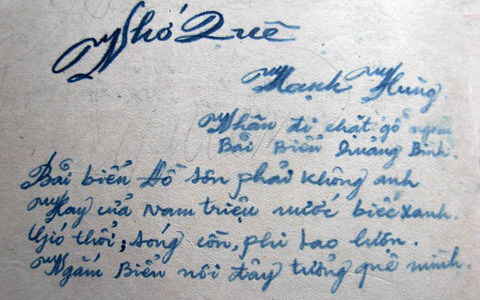 Nhớ Quê
Mạnh Hùng
Nhân đi chặt gổ ngoài
Bải Biển Quảng Bình.
Bải biển Đồ Sơn phải không anh
Hay cửa Nam Triệu nước biếc xanh.
Gió thổi; sóng cồn, phi lao lướn.
Ngắm Biển nơi đây tưởng quê mình.